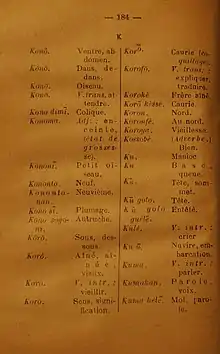 — 184 —
K
Kono. Ventre, ab-
domen.
Kono. Dans, de-
dans.
Kono. Oiseau.
Kono. V. trans. at-
tendre.
Kono dimi. Colique.
Konoma. Adj. : en-
ceinte,
(état de
grosses-
se).
Petit oi-
seau.
Kononto. Neuf.
Neuvième.
Kono si. Plumage.
Autruche.
Kôrô. Sous, des-
sous.
Korô. Aîné, aî-
née,
vieux.
Koro. V. intr. :
vieillir.
Koro. Sens, signi-
fication.
Caurie (co-
quillage).
Korofo. V. trans. :
expliquer,
traduire.
Korokè Frère aîné
Caurie.
Koron. Nord.
Au nord.
Koroya. Vieillesse
Adverbe,
Bien.
Ku. Manioc
Queue.
Tête, som-
met.
Kũ golo. Tête.
Kũ golo Entêté.
Kulé. V. intr. :
crier
Navire, em-
barcation.
Kuma. V. intr. :
parler.
Kumakan. Parole,
voix.
Mot, paro-
le.